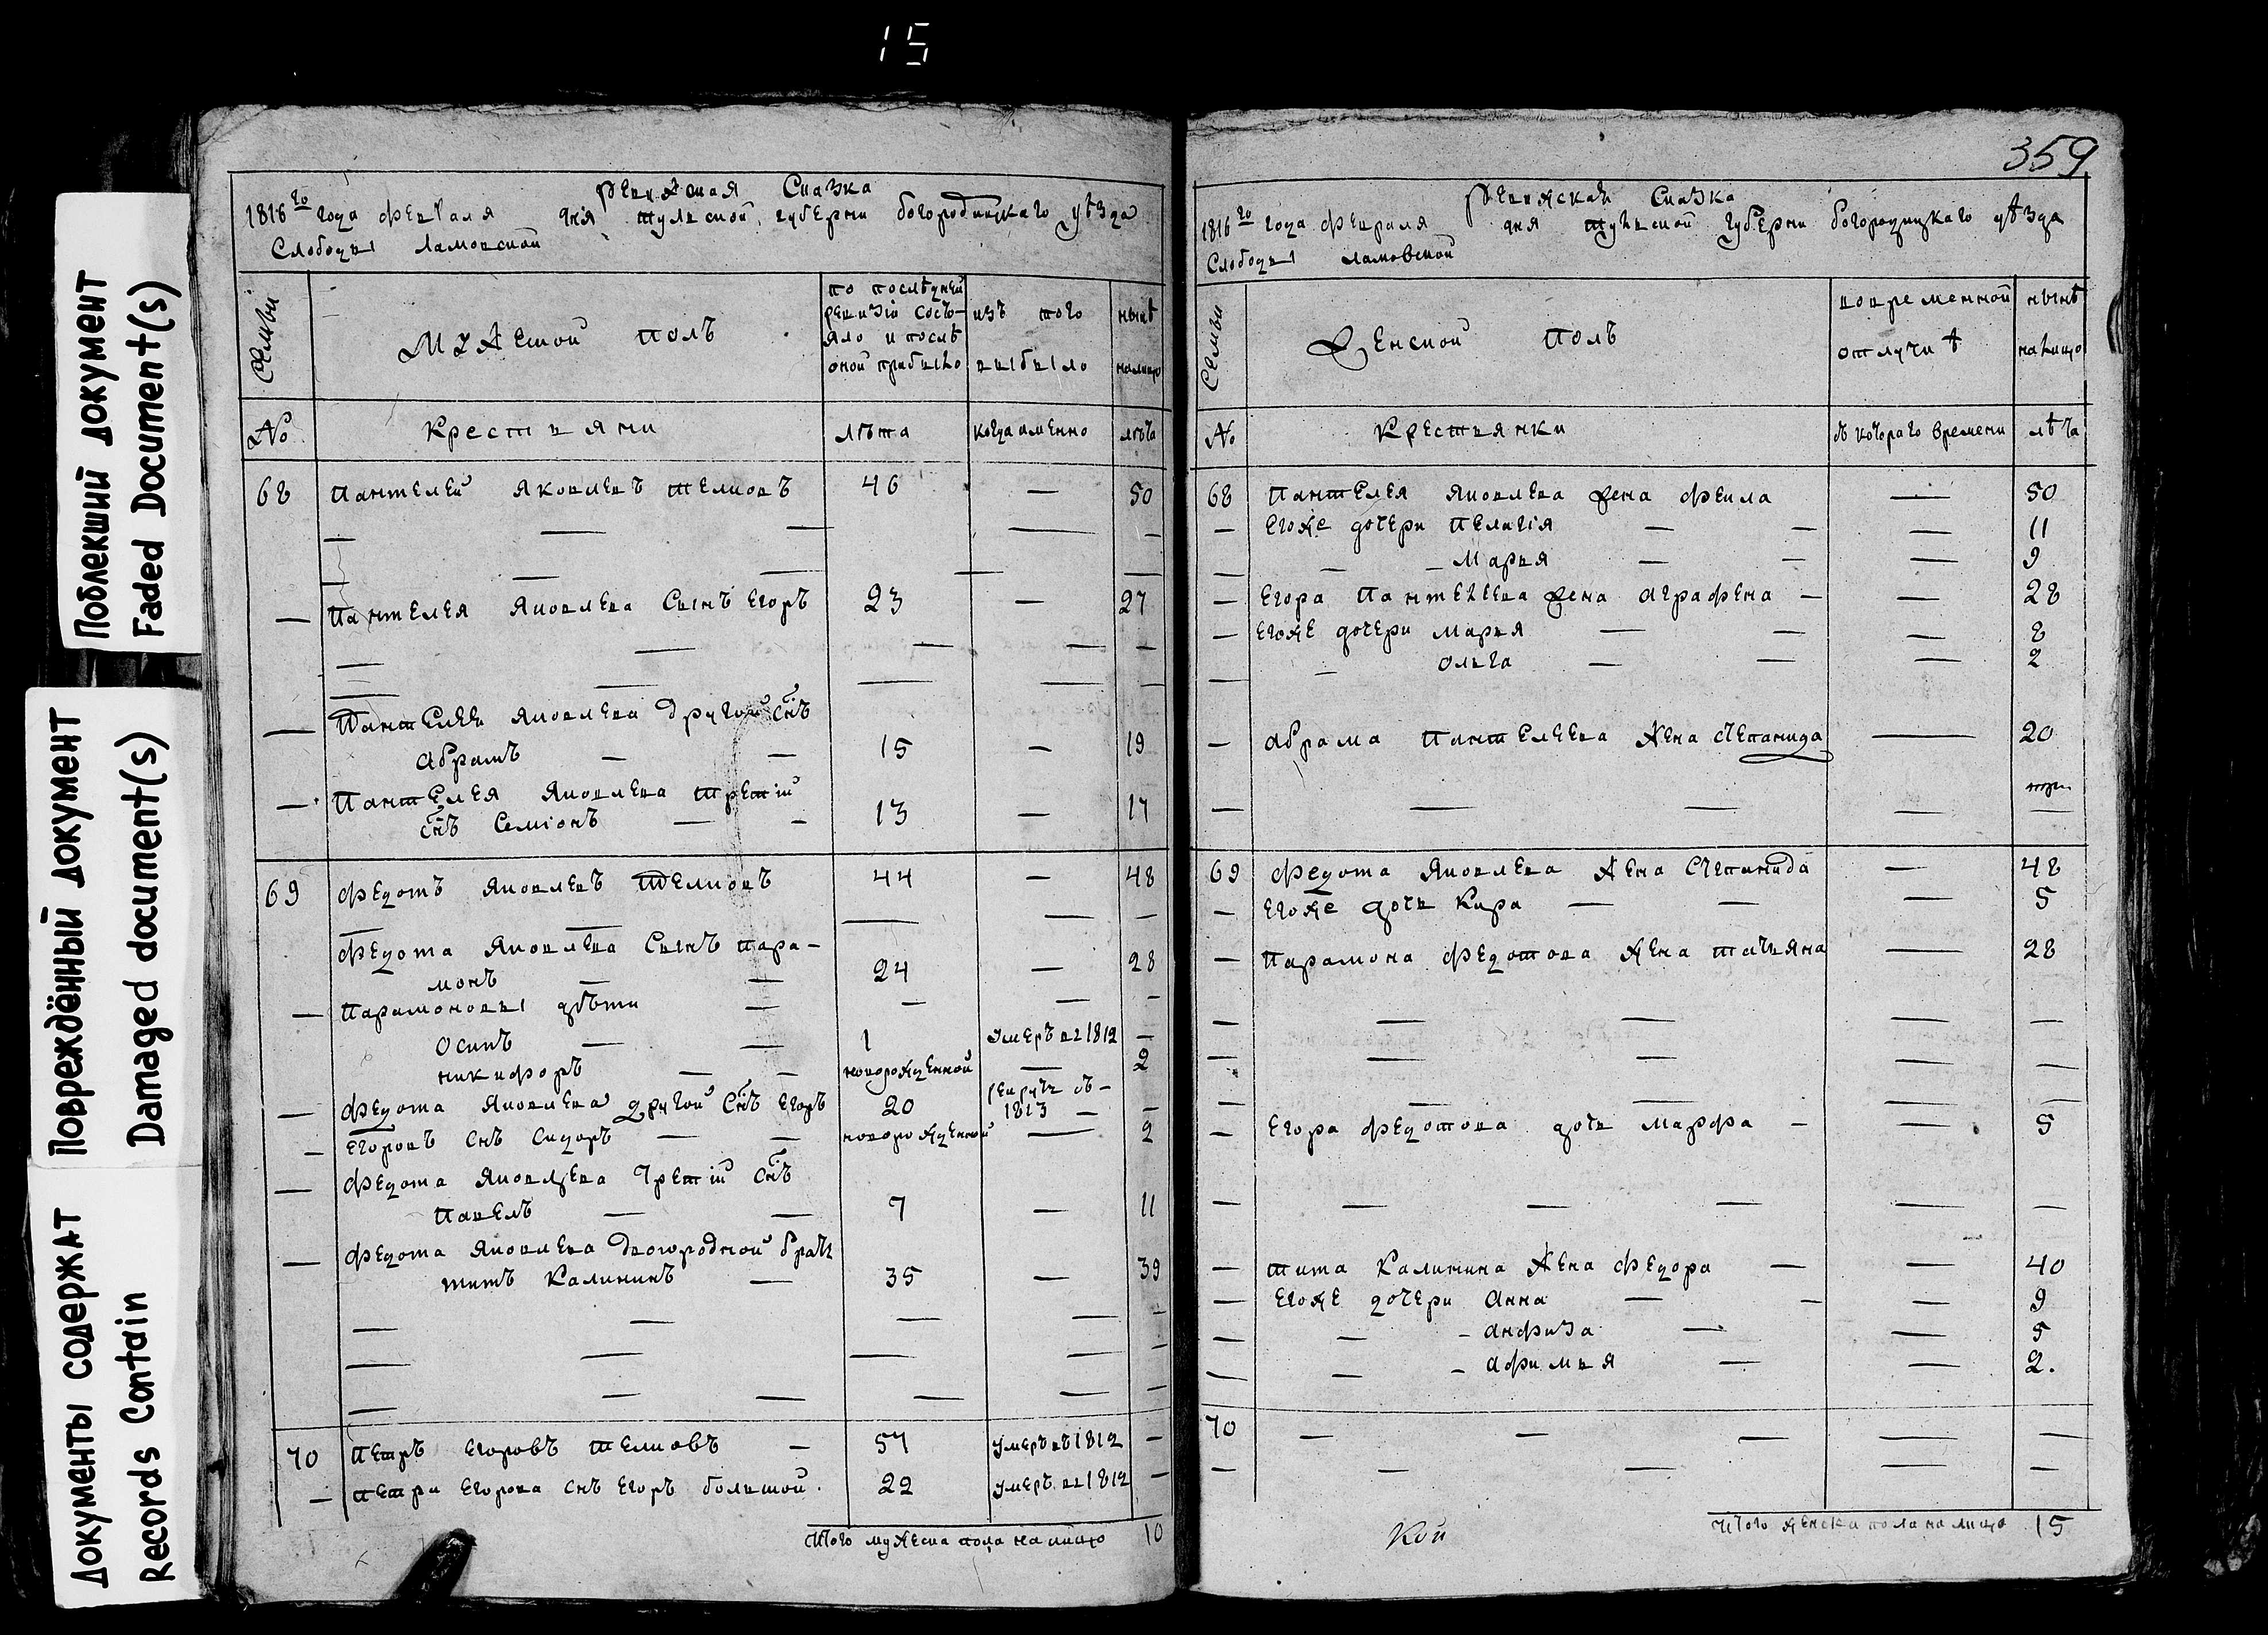 15
Поблекший документ
Faded Document(s)
Повреждённый документ
Damaged document(s)
Документы содержат
Records Contain
Ревижская Сказка
1816го года Февраля дня тульской губерни богородицкаго уѣзда
Слободы Ламовской
Семьи
Мужеской полъ
по послѣдней ревизіи состьяло и послѣ оной прибыло
изъ того выбыло
нынѣ налицо
№
Крестьяни
лѣта
когда именно
лѣта
68 Пантелей Яковлевъ телковъ 46 — 50
— Пантелея Яковлева Сынъ Егоръ 23 — 27
— Пантелея Яковлева другой снъ
Абрамъ — — 15 — 19
— Пантелея Яковлева третій
снъ Семіонъ — — 13 — 17
69 Федотъ Яковлевъ телковъ 44 — 48
Федота Яковлева Сынъ пара-
монъ — — 24 — 28
— Парамоновы дѣти — — — —
Осипъ — — 1 умеръ въ 1812 —
никифоръ — — новорожденной — 2
— Федота Яковлева другой Снъ Егоръ 20 рекрутъ съ- 1813 — —
— Егоровъ снъ Сидоръ — — новорожденной — 2
— Федота Яковлева третій снъ
Павелъ — — 7 — 11
— Федота Яковлева двоюродной братъ
титъ Калининъ — 35 — 39
70 Петръ Егоровъ телковъ — 57 умеръ въ 1812 —
— петра Егорова снъ Егоръ большой 22 умеръ въ 1812 —
Итого мужеска пола налицо 10
359
Ревижская Сказка
1816го года февраля дня тульской губерни богородицкаго уѣзда
Слободы ламовской
Семьи
Женской полъ
вовременной отлучиѣ
нынѣ налицо
№
Крестьянки
съ котораго времени
лѣта
68 Пантелея Яковлева жена фекла — 50
— Егоже дочери Пелагія — — — 11
— — — Марья — — — 9
— Егора Пантелеева жена аграфена — — 28
— Егоже дочери марья — — — 8
— — Ольга — — — 2
— абрама Пантелеева жена степанида — 20
69 Федота Яковлева жена Степанида — 48
— Егоже дочь Кира — — — 5
— Парамона федотова жена татьяна — 28
— Егора федотова дочь марфа — — 5
— тита Калинина жена федора — — 40
— Егоже дочери Анна — — — 9
— — — анфиза — — 5
— — — афимья — — 2.
70 — — — — —
Итого женска пола налицо 15
Кой